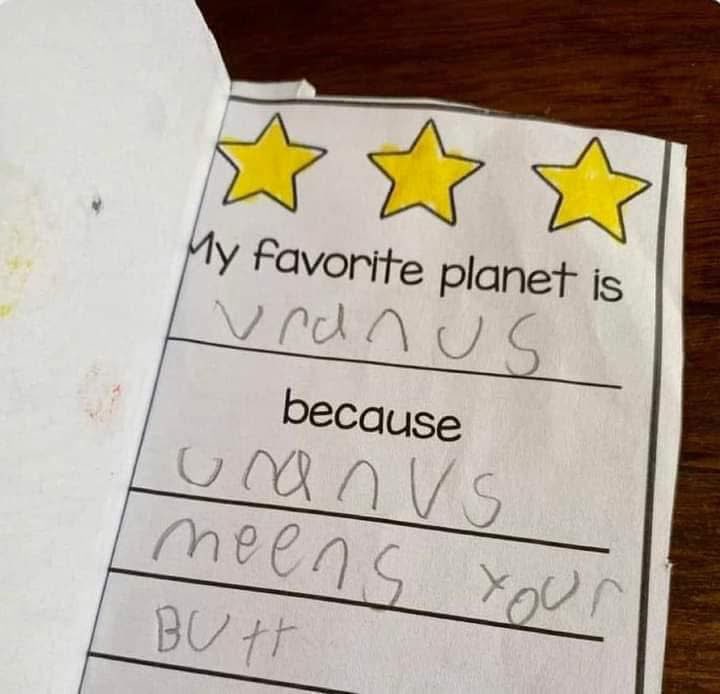 My favorite planet is
Uranus
because
Uranus
meens your
Butt